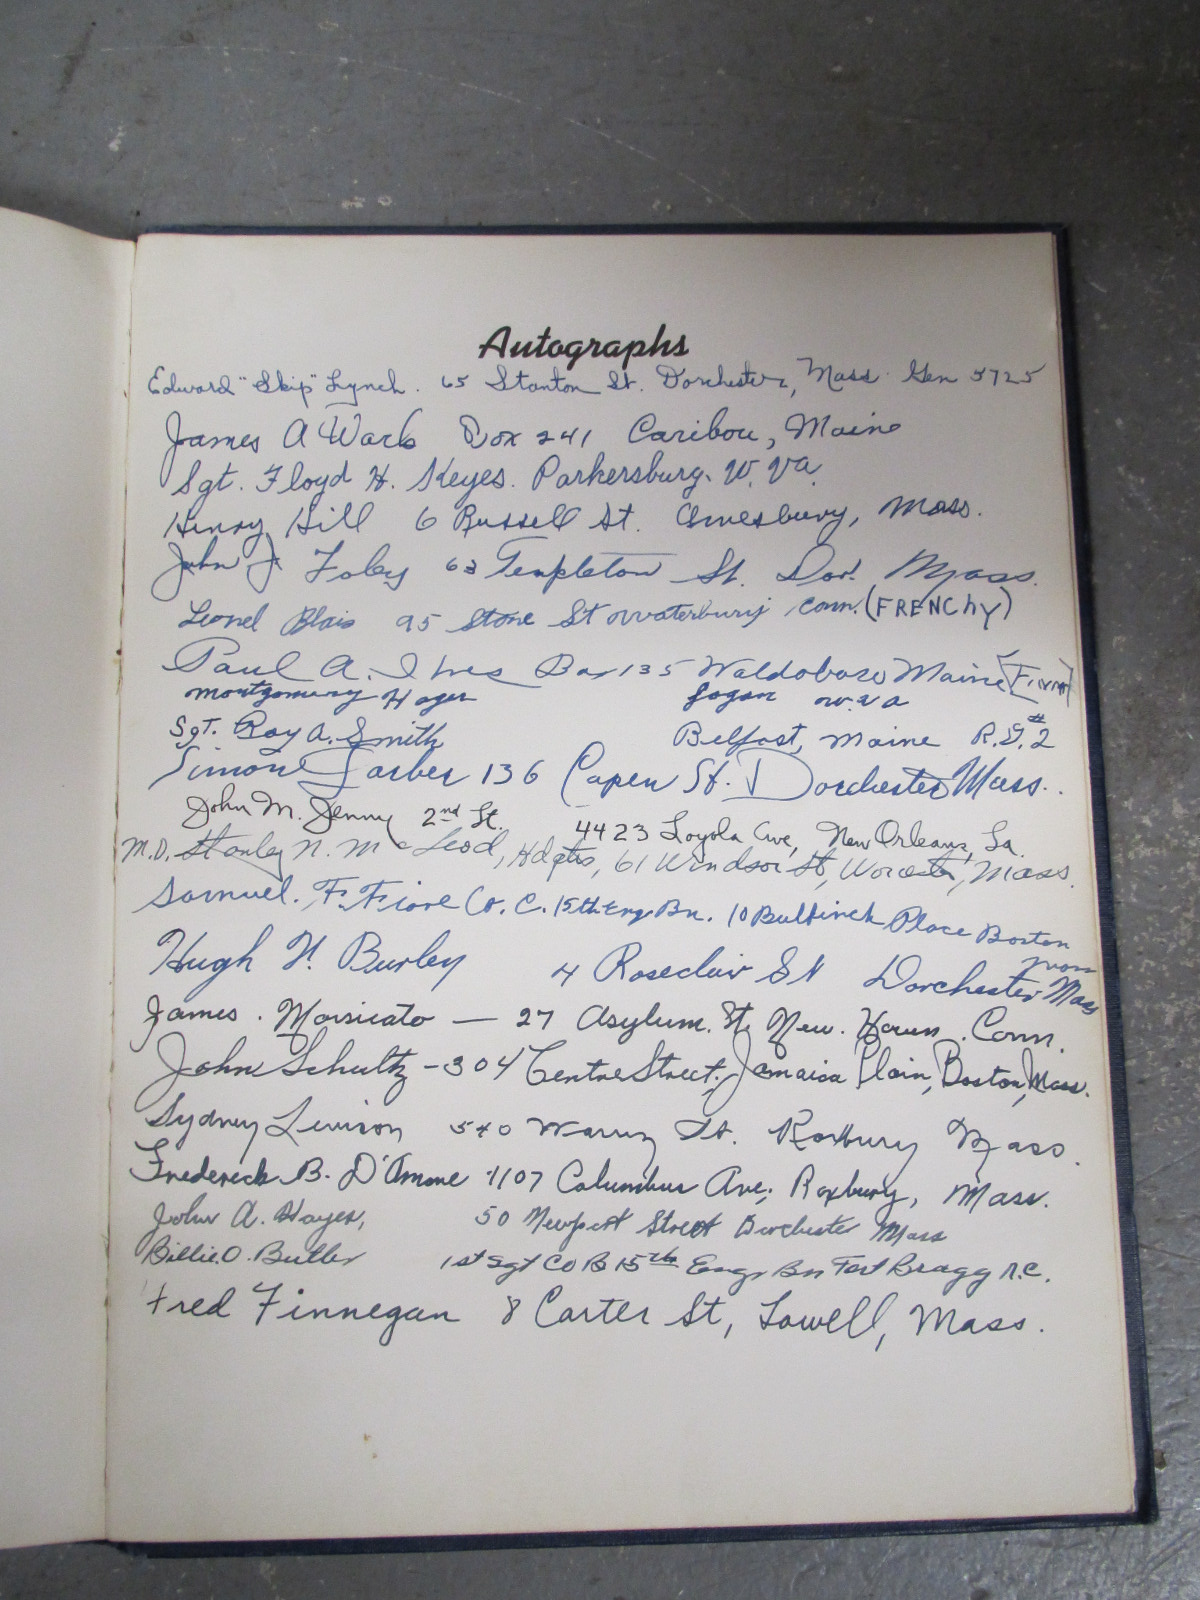 Autographs
Edward "Skip" Lynch. 65 Stanton St. Dorchester, Mass. Gen 5725
James A Wark Box 241 Caribou, Maine
Sgt. Floyd H. Keyes. Parkersburg. W. Va.
Henry Hill 6 Russell St. Amesbury, Mass.
John J. Foley 63 Templeton St. Dor. Mass.
Leonel Blais 95 Stone St Waterbury Conn. (FRENCHY)
Paul A. Ives Box 135 Waldoboro Maine
Montgomery Hager Logan W. Va
Sgt. Roy A. Smith Belfast, Maine R.D. #2
Simon Garber 136 Capen St. Dorchester Mass.
John M. Jenny 2nd Lt. 4423 Loyola Ave, New Orleans, La.
M.D. Stanley N. McLeod, Hdqtrs, 61 Windsor St, Worcester, Mass.
Samuel. F. Fiore Co. C. 15th Eng. Bn. 10 Bulfinch Place Boston
Mass
Hugh H. Burley 4 Roseclair St Dorchester Mass
James. Marsicato — 27 Asylum. St. New. Haven. Conn.
John Schultz - 304 Centre Street, Jamaica Plain, Boston, Mass.
Sydney Levison 540 Warren St. Roxbury Mass.
Frederick B. D'Amore 1107 Columbus Ave; Roxbury, Mass.
John A. Hayes, 50 Newport Street Dorchester Mass
Billie O. Butler 1st Sgt Co B 15th Engr Bn Fort Bragg N.C.
Fred Finnegan 8 Carter St, Lowell, Mass.